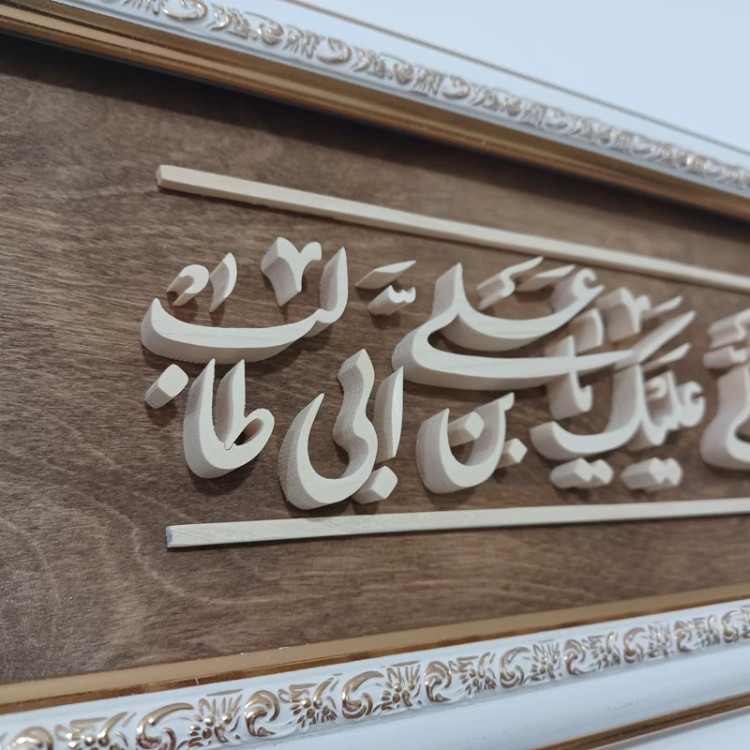 علیک یا علی بن ابی طالب